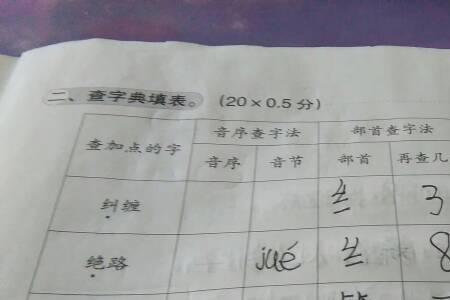 二、查字典填表。(20×0.5分)
查加点的字 音序查字法 部首查字法
音序 音节 部首 再查几
纠缠 纟 3
绝路 jué 纟 8